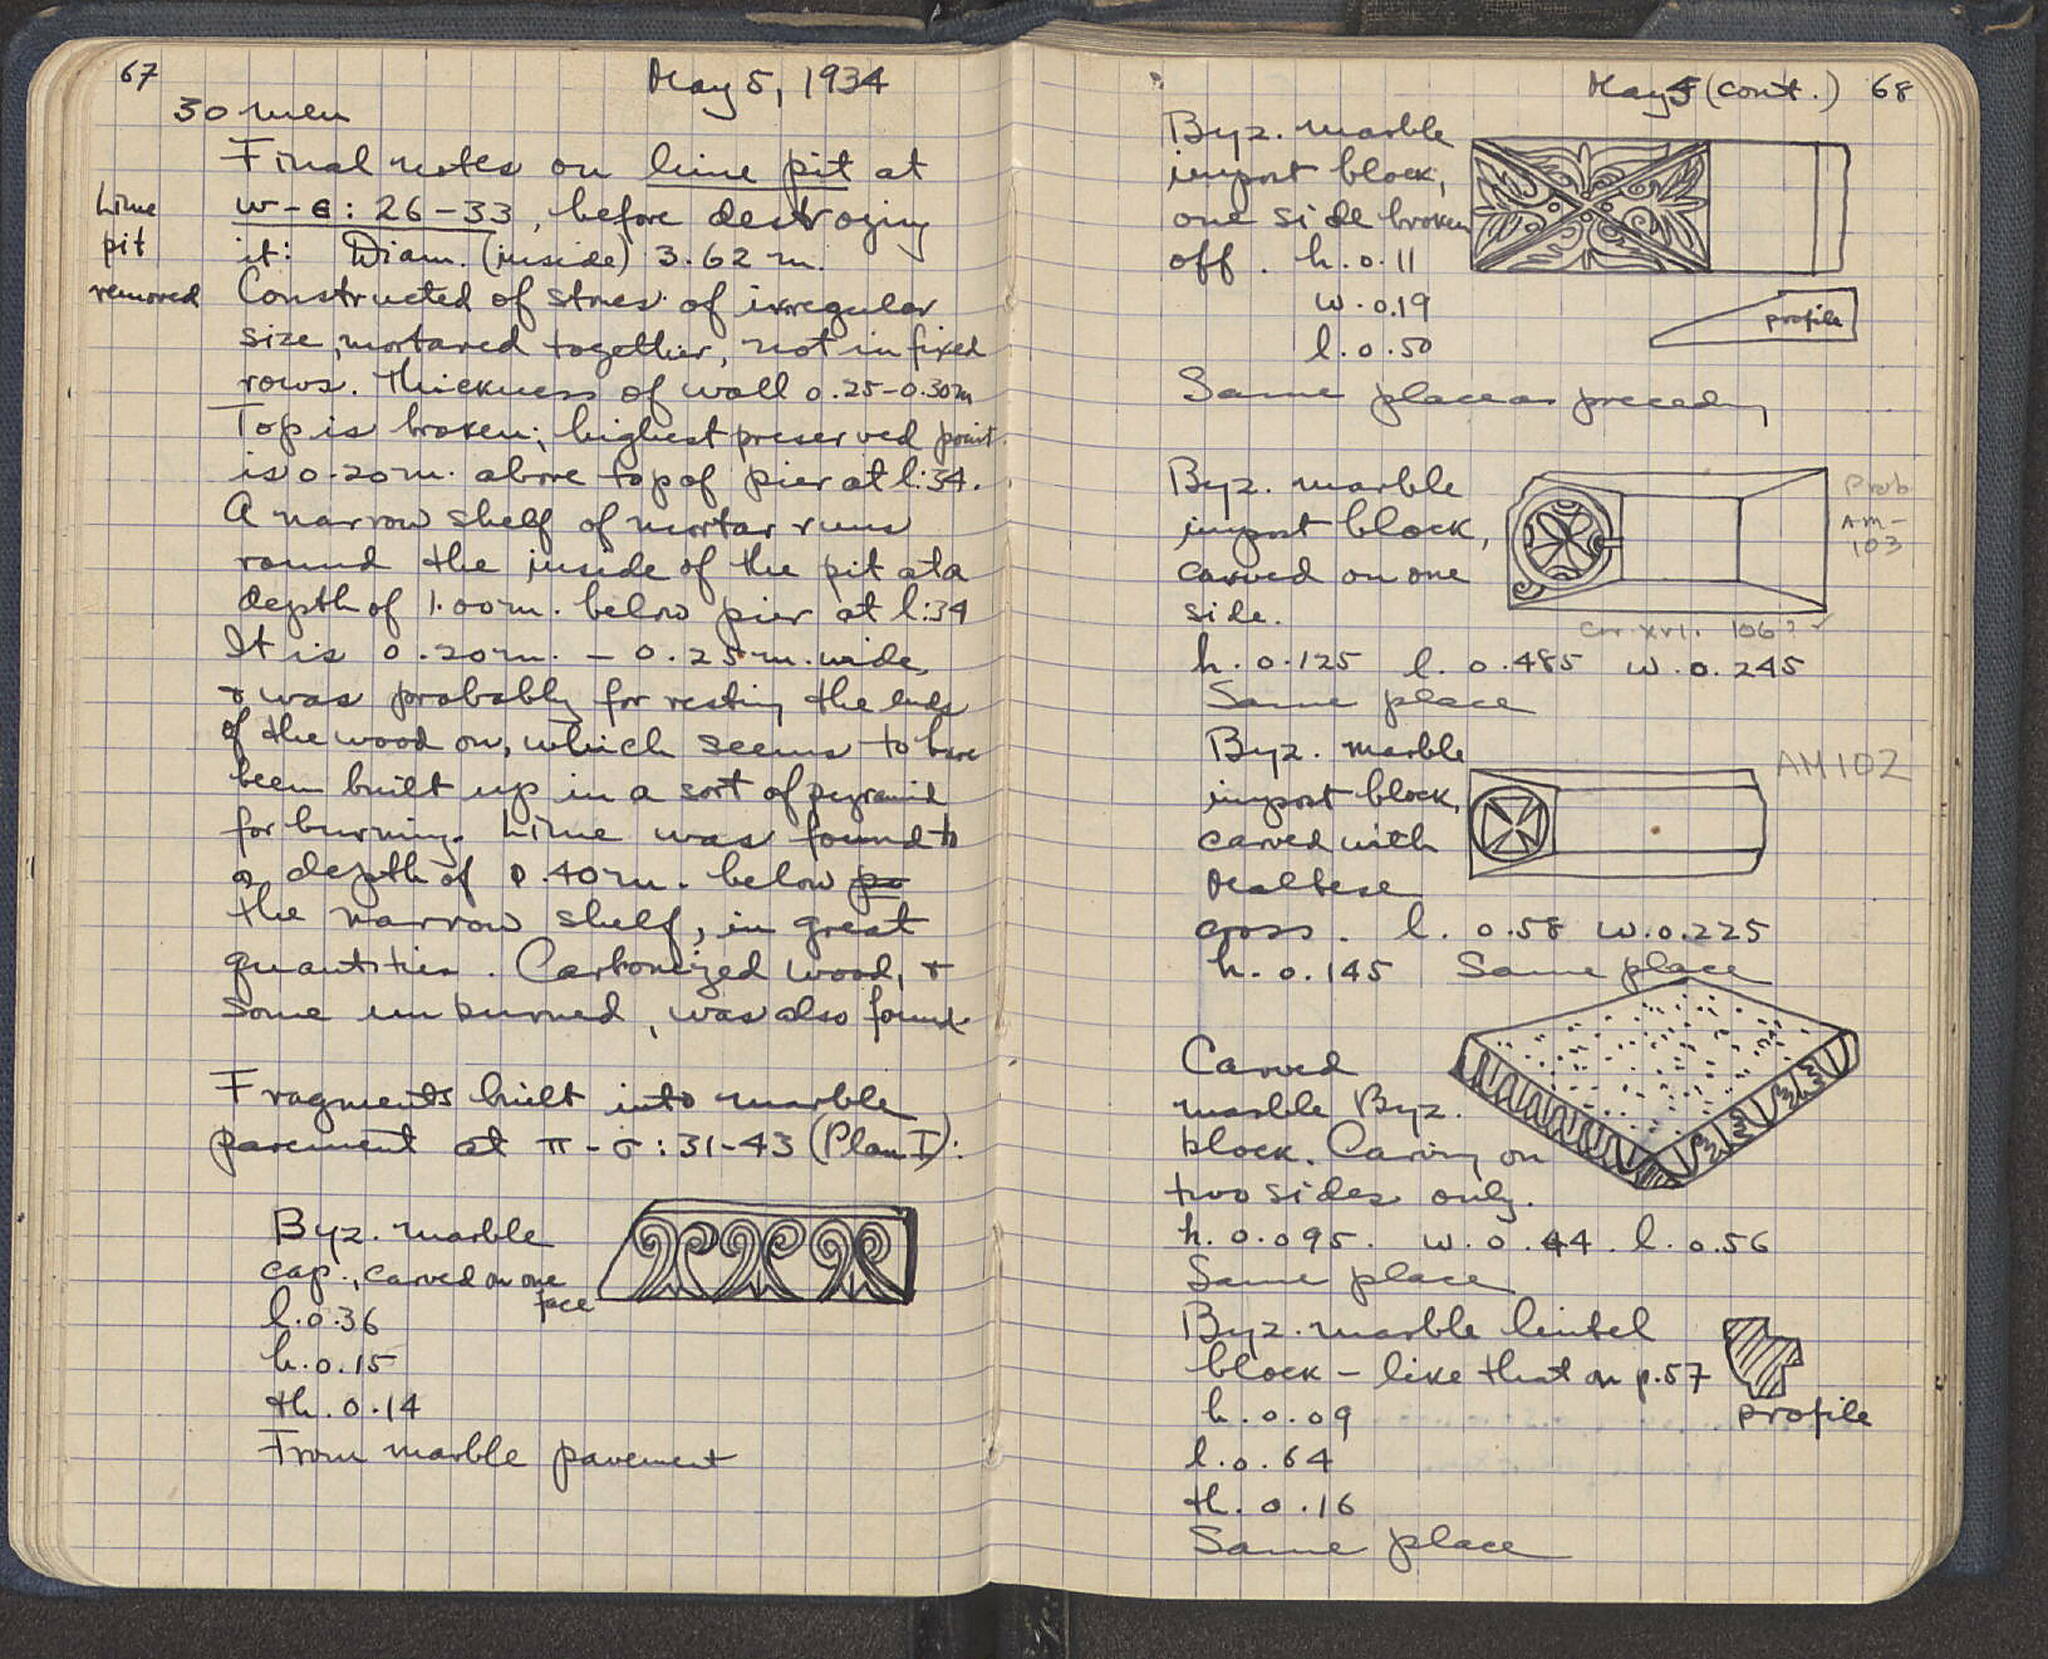 67
May 5, 1934
30 men
Final notes on lime pit at
w-e: 26-33, before destroying
it: Diam. (inside) 3.62 m.
Lime
pit
removed
Constructed of stones of irregular
size, mortared together, not in fixed
rows. Thickness of wall 0.25-0.30m
Top is broken; highest preserved point
is 0.20m. above top of pier at l:34.
A narrow shelf of mortar runs
round the inside of the pit at a
depth of 1.00m. below pier at l:34
It is 0.20m. - 0.25m. wide,
& was probably for resting the ends
of the wood on, which seems to have
been built up in a sort of pyramid
for burning. Lime was found to
a depth of 0.40m. below po
the narrow shelf, in great
quantities. Carbonized wood, &
some unburned, was also found.
Fragments built into marble
pavement at π-σ:31-43 (Plan I):
Byz. marble
cap., carved on one
face
l.0.36
h.0.15
th.0.14
From marble pavement
May 5 (cont.) 68
Byz. marble
impost block,
one side broken
off. h.0.11
w.0.19
l.0.50
profile
Same place as preceding
Byz. marble
impost block,
carved on one
side.
Prob
AM-
103
106?
h.0.125 l.0.485 w.0.245
Same place
Byz. marble
impost block,
carved with
Maltese
cross. l.0.58 w.0.225
h.0.145 Same place
AM102
Carved
marble Byz.
block. Carving on
two sides only.
h.0.095. w.0.44. l.0.56
Same place
Byz. marble lintel
block - like that on p.57
h.0.09
profile
l.0.64
th.0.16
Same place